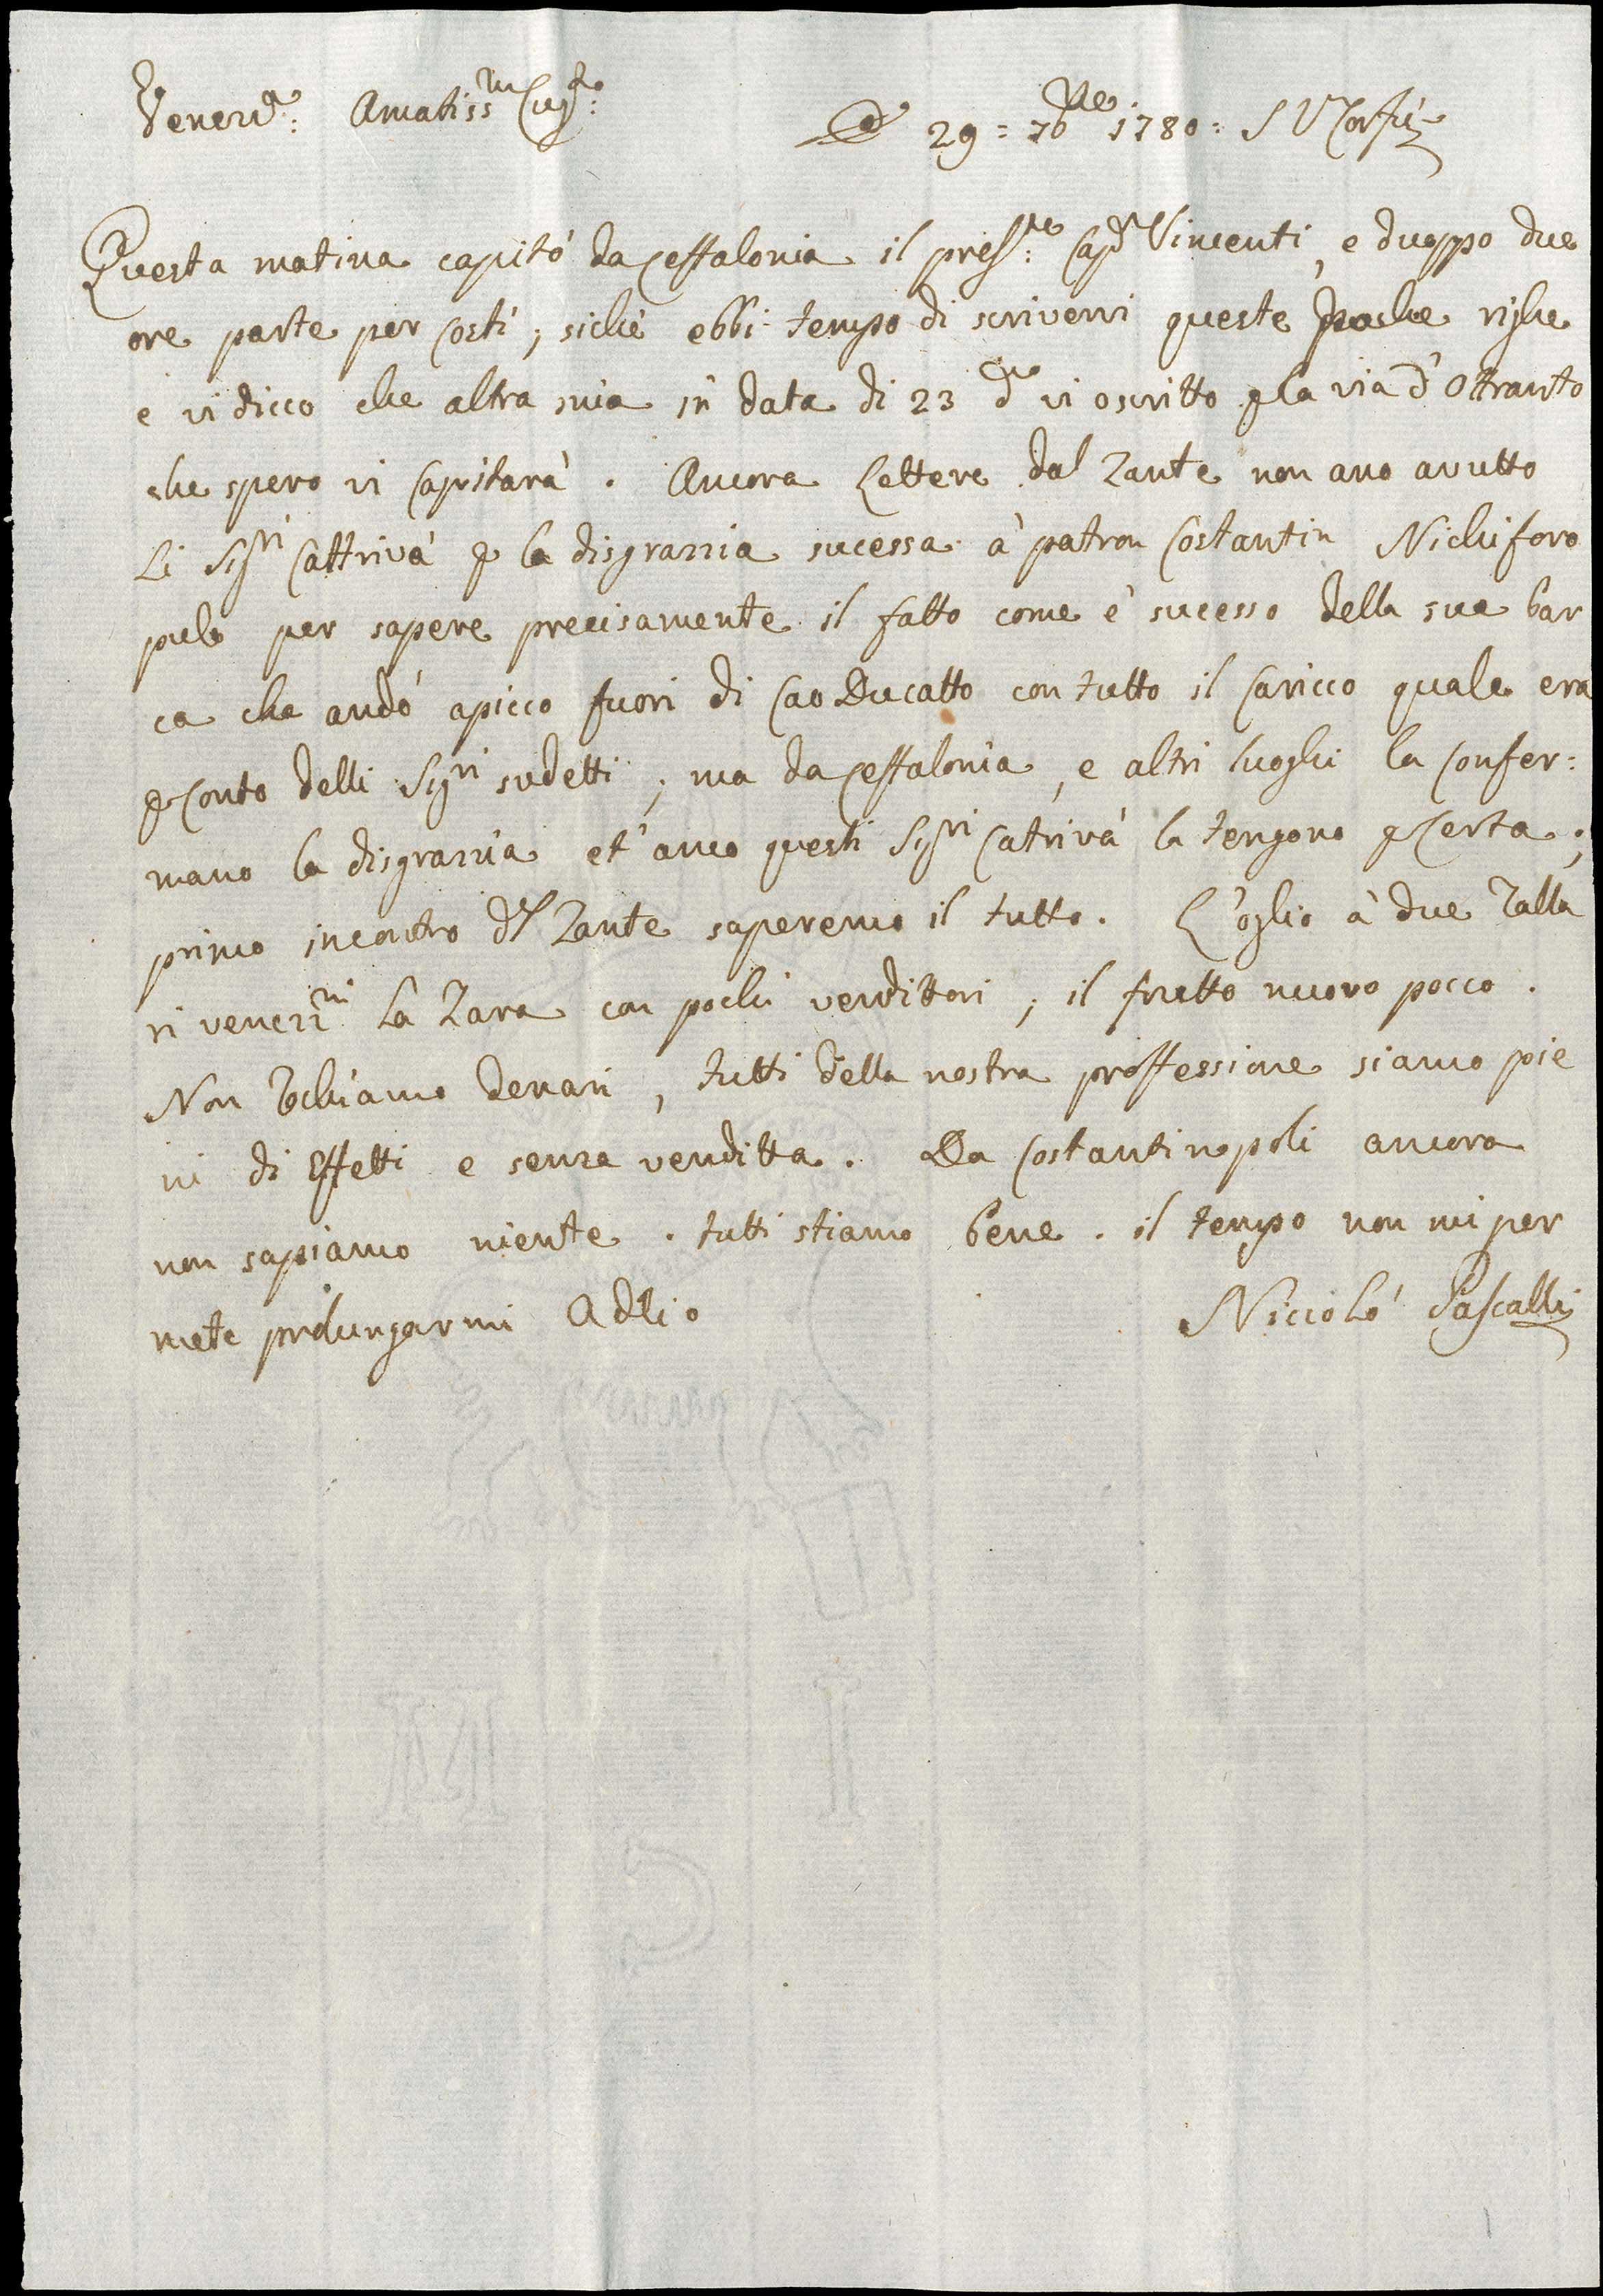 Venezia: Amatiss.mo Cug.no:
Adi 29 = 7bre 1780: S V Corfù
Questa matina capitò da Ceffalonia il pres.te: Cap.n Vincenti, e duoppo due
ore parte per costì; sichè ebbi tempo di scrivervi queste poche righe
e vi dicco che altra mia in data di 23 d.to vi o scritto p la via d'Ottranto
che spero vi capitarà. Ancora Lettere dal Zante non ano avutto
Li Sig.ri Cattrivà p la disgrazzia sucessa à patron Costantin Nichiforo
pulo per sapere precisamente il fatto come è sucesso della sua bar
ca che andò apicco fuori di Cao Ducatto con tutto il Caricco quale era
p Conto delli Sig.ri sudetti; ma da Ceffalonia, e altri luoghi la Confer:
mano la disgrazzia et' anco questi Sig.ri Catrivà la tengono p Certa;
primo incontro d.l Zante saperemo il tutto. L'oglio à due Talla
ri venez.ni la Zara con pochi vendittori; il frutto nuovo pocco.
Non Tochiamo denari, tutti della nostra proffessione siamo pie
ni di Effetti e senza venditta. Da Costantinopoli ancora
non sapiamo niente. tutti stiamo bene. il tempo non mi per
mete prolungarmi Adio
Niccolò Pascalli